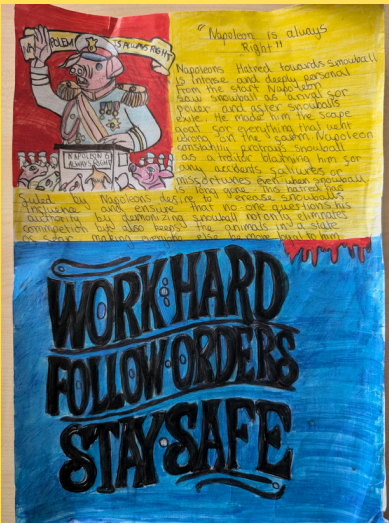 "Napoleon is always
Right"
NAPOLEON IS ALWAYS RIGHT
NAPOLEON IS
ALWAYS RIGHT
Napoleons Hatred towards snowball
is intense and deeply personal
From the start Napoleon
saw snowball as a rival for
power and after snowballs
exile. He made him the scape
goat for everything that went
wrong on the farm. Napoleon
constantly portrays snowball
as a traitor blaming him for
any accidents failures or
misfortunes even when snowball
is long gone. This hatred has
fuled by Napoleons desire to erease snowballs
influence and ensure that no one questions his
authority by demonizing snowball not only eliminates
commpetition but also keeps the animals in a state
of fear making else be more loyal to him
WORK HARD
FOLLOW ORDERS
STAY SAFE